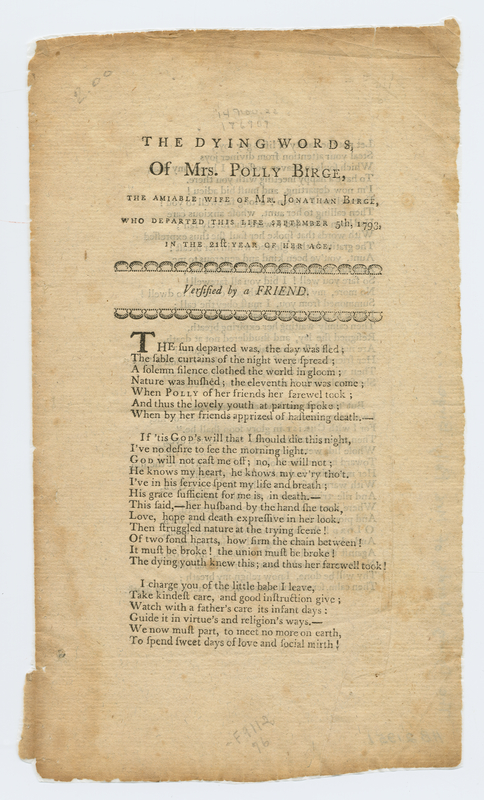 2.00
THE DYING WORDS,
Of Mrs. POLLY BIRGE,
THE AMIABLE WIFE OF MR. JONATHAN BIRGE,
WHO DEPARTED THIS LIFE SEPTEMBER 5th, 1792,
IN THE 21ſt YEAR OF HER AGE.
Verſified by a FRIEND.
THE ſun departed was, the day was fled;
The ſable curtains of the night were ſpread;
A ſolemn ſilence clothed the world in gloom;
Nature was huſhed; the eleventh hour was come;
When POLLY of her friends her farewel took;
And thus the lovely youth at parting ſpoke;
When by her friends apprized of haſtening death.—
If 'tis GOD's will that I ſhould die this night,
I've no deſire to ſee the morning light.
GOD will not caſt me off; no, he will not;
He knows my heart, he knows my ev'ry tho't.
I've in his ſervice ſpent my life and breath;
His grace ſufficient for me is, in death.—
This ſaid,—her huſband by the hand ſhe took,
Love, hope and death expreſſive in her look.
Then ſtruggled nature at the trying ſcene!
Of two fond hearts, how firm the chain between!
It muſt be broke! the union muſt be broke!
The dying youth knew this; and thus her farewell took!
I charge you of the little babe I leave,
Take kindeſt care, and good inſtruction give;
Watch with a father's care its infant days:
Guide it in virtue's and religion's ways.—
We now muſt part, to meet no more on earth,
To ſpend ſweet days of love and ſocial mirth!